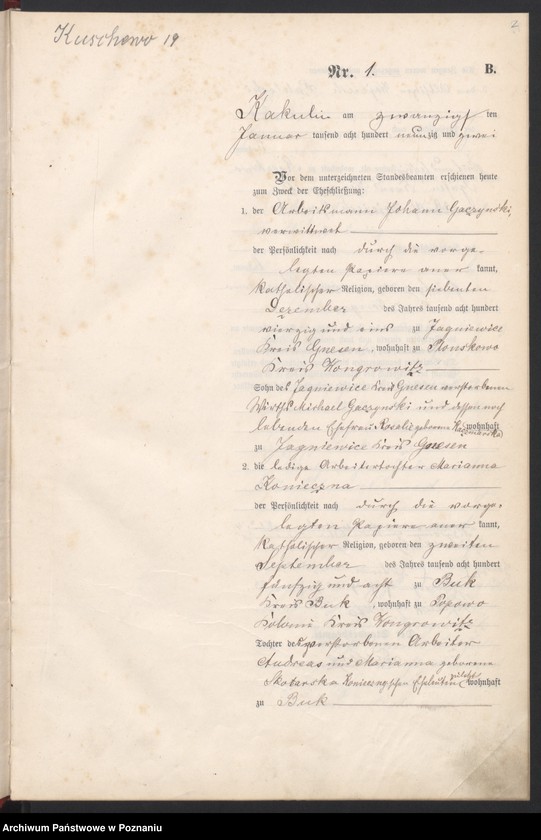 2
Kuschewo 19
Nr. 1. B.
Kakulin am zwanzigsten
Januar tausend acht hundert neunzig und zwei
Vor dem unterzeichneten Standesbeamten erschienen heute
zum Zweck der Eheschließung:
1. der Arbeitsmann Johann Gaczynski,
verwittwet
der Persönlichkeit nach durch die vorge-
legten Papiere aner kannt,
katholischer Religion, geboren den siebenten
Dezember des Jahres tausend acht hundert
vierzig und eins zu Jagniewice
Kreis Gnesen, wohnhaft zu
Kreis Wongrowitz
Sohn des Jagniewice Kreis Gnesen verstorbenen
Wirths Michael Gaczynski und dessen noch
lebenden Ehefrau Rosalie geborene wohnhaft
zu Jagniewice Kreis Gnesen
2. die ledige Arbeitertochter Marianna
Konieczna
der Persönlichkeit nach durch die vorge-
legten Papiere aner kannt,
katholischer Religion, geboren den zweiten
September des Jahres tausend acht hundert
fünfzig und acht zu Buk
Kreis Buk, wohnhaft zu Popowo
Kolonie Kreis Wongrowitz
Tochter der verstorbenen Arbeiter
Andreas und Marianna geborene
Koniecznyschen Eheleuten zuletzt wohnhaft
zu Buk
Archiwum Państwowe w Poznaniu